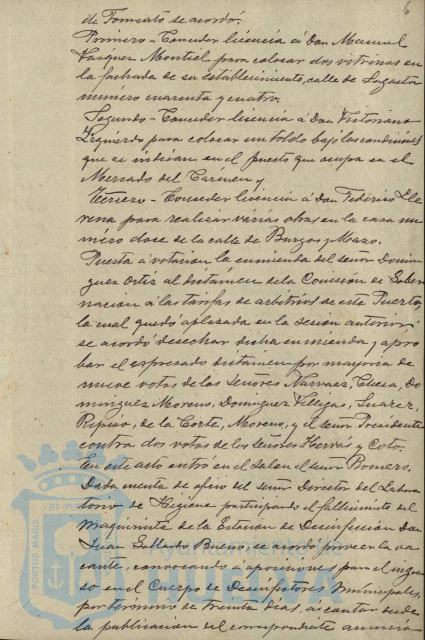 6
de Fomento se acordó:
Primero - Conceder licencia á Don Manuel
Vasquez Montiel para colocar dos vitrinas en
la fachada de su establecimiento, calle de Sagasta
número cuarenta y cuatro.
Segundo - Conceder licencia á Don Victoriano
Izquierdo para colocar un toldo bajo las condiciones
que se indican en el puesto que ocupa en el
Mercado del Carmen y
Tercero - Conceder licencia á Don Federico Lle
rena para realizar varias obras en la casa nu
mero doce de la calle de Burgos y Mazo.
Puesta á votacion la enmienda del señor Domin
guez Ortiz al dictámen de la Comisión de Gober
nacion á las tarifas de arbitrios de este Puerto,
la cual quedó aplazada en la sesion anterior
se acordó desechar dicha enmienda y apro
bar el expresado dictámen por mayoria de
nueve votos de los Señores Narvaez, Cuesa, Do
minguez Moreno, Dominguez Villegas, Suarez,
Repiso, de la Corte, Moreno, y el señor Presidente
contra dos votos de los Señores Hervás y Coto.
En este acto entró en el Salon el señor Romero.
Dada cuenta de oficio del señor Director del Labora
torio de Higiene participando el fallecimiento del
Maquinista de la Estacion de Desinfección Don
Juan Gallardo Bueno se acordó proveer la va
cante, convocando á oposiciones para el ingre
so en el Cuerpo de Desinfectores Municipales,
por termino de treinta dias, á contar desde
la publicacion del correspondiente anuncio
PORTUS MARIS